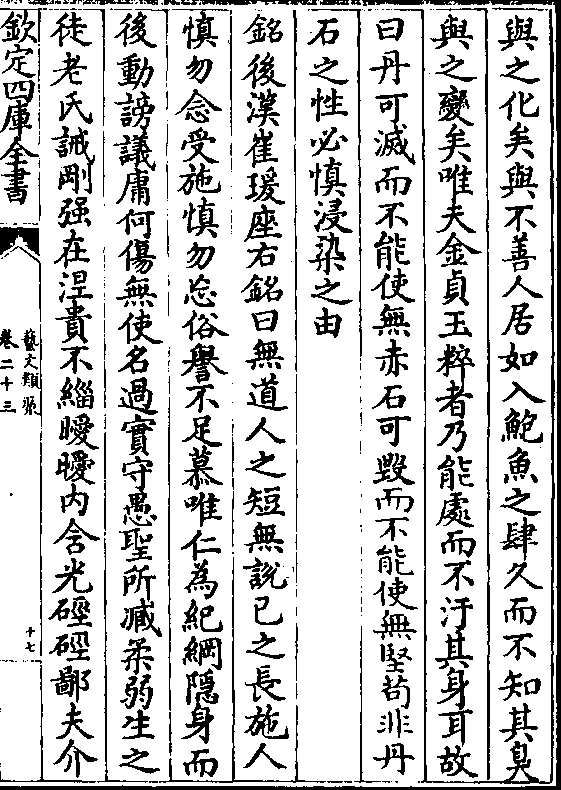 與之化矣與不善人居如入鮑魚之肆久而不知其臭
與之變矣唯夫金貞玉粹者乃能處而不汙其身耳故
曰丹可滅而不能使無赤石可毀而不能使無堅苟非丹
石之性必慎浸染之由
銘後漢崔瑗座右銘曰無道人之短無説己之長施人
慎勿念受施慎勿忘俗譽不足慕唯仁為紀綱隠身而
後動謗議庸何傷無使名過實守愚聖所臧柔弱生之
徒老氏誡剛强在涅貴不緇曖曖内含光硜硜鄙夫介
欽定四庫全書
藝文類聚
卷二十三
十七